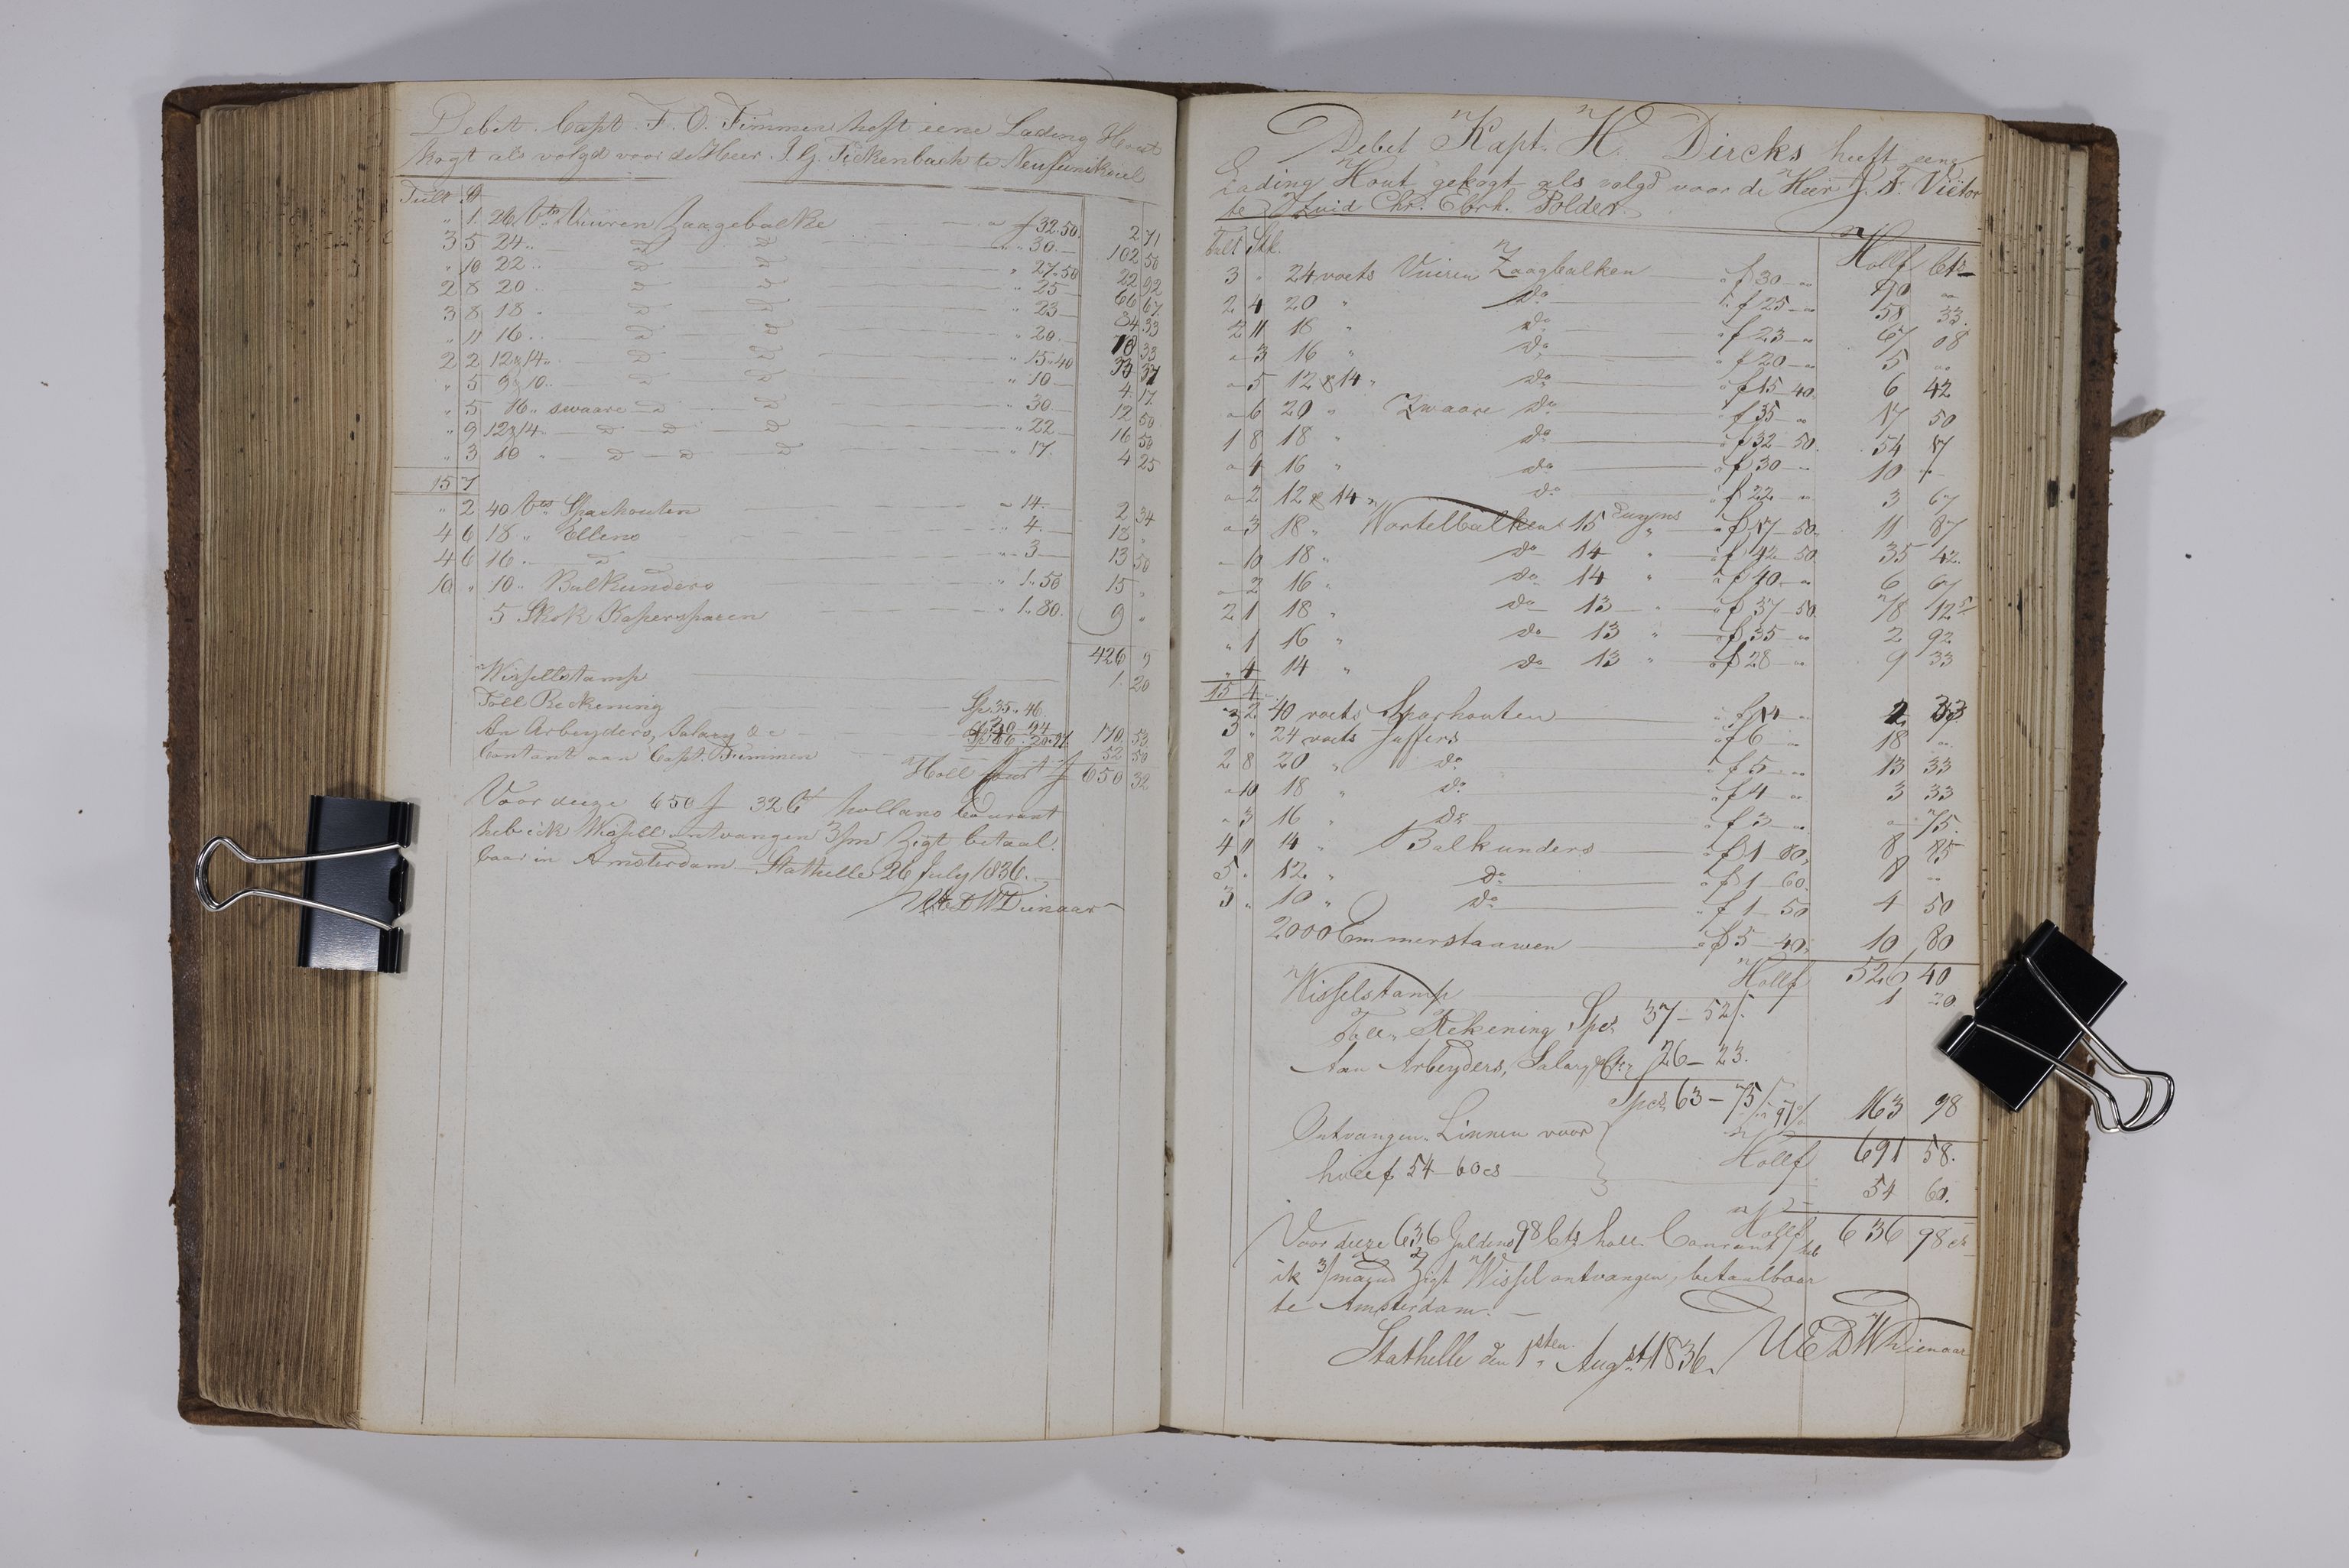 Debet Capt. F. O. Fimmen heft eene Lading Hout
kogt als volgd voor de Heer J. G. Fickenback te
Tult
" 1 26 Vts Vuuren Zaagebalke " f 32.50 2 71
3 5 24 " d d " 30 — 102 50
" 10 22 " d d " 27.50 22 92
2 8 20 " d d " 25 — 66 67
3 8 18 " d d " 23 — 84 33
" 11 16 " d d " 20 — 18 33
2 2 12 & 14 " d d " 15.40 33 37
" 5 9 & 10 " d d " 10 — 4 17
" 5 16 " swaare d d " 30 — 12 50
" 9 12 & 14 " d d d " 22 — 16 50
" 3 10 " d d d " 17. 4 25
15 7
" 2 40 Vts Sparhouten " 14. 2 34
4 6 18 " Ellens " 4. 18 "
4 6 16 " d " 3 — 13 50
10 " 10 " Balkunders " 1.50 15 "
5 Shok Kapersparen " 1.80. 9 "
426 9
Wissellstamp 1. 20
Toll Reckening Sp. 35 .. 46.
An Arbeyders, Salary & c 170 53
Contant aan Capt. Fimmen 52 50
Holl Court f 650 32
Voor deeze 650 f 32 Ct hollans Courant
heb ick Wissell ontvangen 3/m Zigt betaal.
baar in Amsterdam — Stathelle 26 July 1836. —
UEDWDienaar
Debet Kapt. H. Dircks heeft eene
Lading Hout gekogt als volgd voor de Heer J. F. Victor
te Zuid Chr. Ebrh. Polder.
Tult Stk. Hollf Cts
3 " 24 voets Vuiren Zaagbalken " f 30 — " 90 "
2 4 20 " do " f 25 — " 58 33.
2 11 18 " do " f 23 — " 67 08
" 3 16 " do " f 20 — " 5 "
" 5 12 & 14 " do " f 15 40. 6 42
" 6 20 " Zwaare do " f 35 — " 17 50
1 8 18 " do " f 32 — 50. 54 17
" 4 16 " do " f 30 — " 10 "
" 2 12 & 14 " do " f 22 — " 3 67
" 3 18 " Wortelbalken 15 Duyms " f 47 — 50. 11 87
" 10 18 " do 14 " " f 42 — 50 35 42.
" 2 16 " do 14 " " f 40 — " 6 67
2 1 18 " do 13 " " f 37 — 50. 78 12 5
" 1 16 " do 13 " " f 35 — " 2 92
" 4 14 " do 13 " " f 28 — " 9 33
15 4
" 2 40 voets Sparhouten " f 14 — " 2 33
3 " 24 voets Juffers " f 6 — " 18 "
2 8 20 " do " f 5 — " 13 33
" 10 18 " do " f 4 — " 3 33
" 3 16 " do " f 3 — " " 75.
4 11 14 " Balkunders " f 1 80, 8 85
5 " 12 " do " f 1 60. 8 "
3 " 10 " do " f 1 50 4 50
2000 Emmerstaawen " f 5 — 40. 10 80
Hollf 526 40
Wisselstamp 1 20.
Toll. Rekening Spcs 37 — 52
Aan Arbeyders, Salary 26 — 23.
Spcs 63 — 75 163 98
Ontvangen Linnen voor Hollf 691 58.
54 — 60 cs 54 60.
Hollf 636 98 cs
Voor deeze 636 Guldens 98 Cts holl. Courant heb
ik 3/maand Zigt Wissel ontvangen, betaalbaar
te Amsterdam. —
Stathelle den 1sten Augst 1836. UEDWDienaar